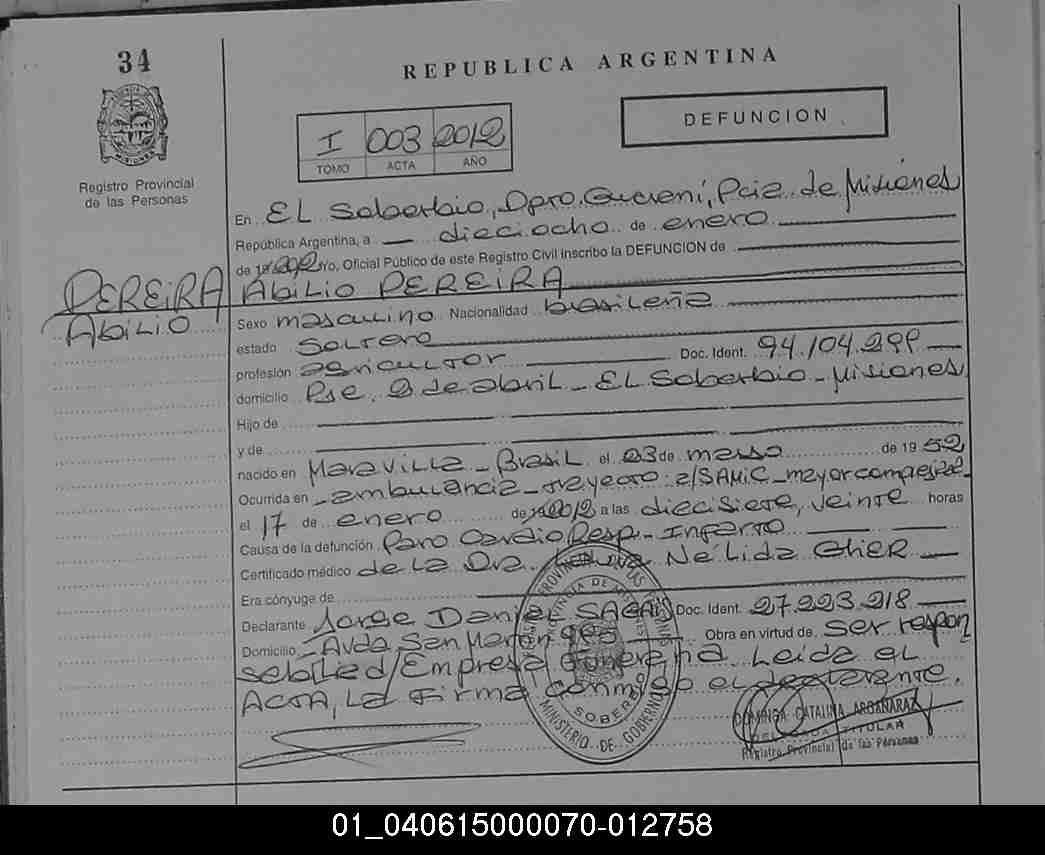 34
REPUBLICA ARGENTINA
Registro Provincial
de las Personas
I 003 2012
TOMO ACTA AÑO
DEFUNCION
En EL Soberbio, Dpto. Guarani, Pcia. de Misiones
República Argentina, a dieciocho de enero
de 2012 Yo, Oficial Público de este Registro Civil inscribo la DEFUNCION de
PEREIRA
ABiLiO
ABiLiO PEREiRA
Sexo masculino Nacionalidad brasileña
estado Soltero
profesión agricultor Doc. Ident. 94.104.299
domicilio Pje. 2 de abril - EL Soberbio - Misiones
Hijo de
y de
nacido en Maravilla - Brasil el 03 de marso de 1952
Ocurrida en ambulancia - trayecto: a/SAMiC
el 17 de enero de 2012 a las diecisiete, veinte horas
Causa de la defunción Paro Cardio Resp. - Infarto
Certificado médico de La Dra. Nelida
Era cónyuge de
Declarante Jorge Daniel Doc. Ident. 27.223.218
Domicilio Avda San Martin Obra en virtud de ser respon
sabilied/Empresa Funeraria. Leida eL
ACTA, La Firma conmigo el declarante.
PROVINCIA DE
MINISTERIO DE GOBIERNO
SOBERBIO
DOMINGA CATALINA ARGAÑARAZ
DELEGADA TITULAR
Registro Provincial de las Personas
01_040615000070-012758